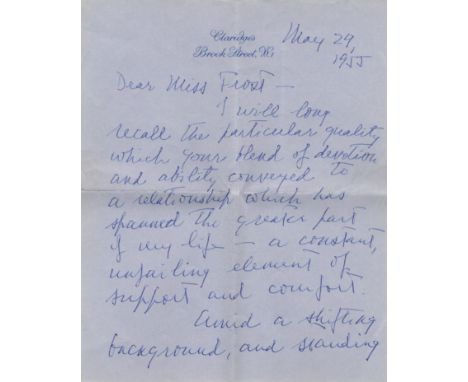 Claridge's
Brook Street, W.1
May 29,
1955
Dear Miss Frost —
I will long
recall the particular quality
which your blend of devotion
and ability conveyed to
a relationship which has
spanned the greater part
of my life — a constant,
unfailing element of
support and comfort.
Amid a shifting
background, and standing